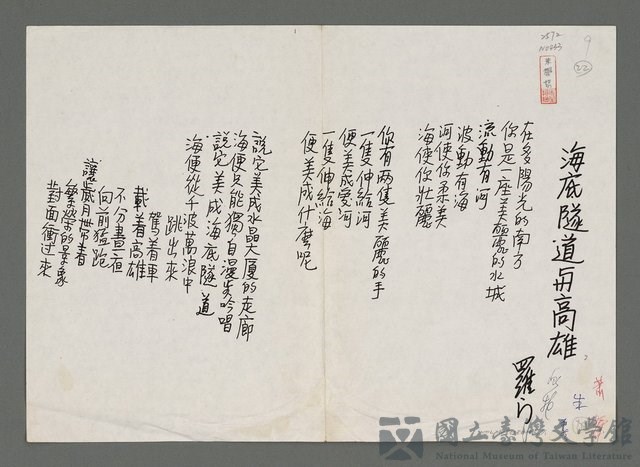 海底隧道與高雄
羅門
在多陽光的南方
你是一座美麗的水城
流動有河
波動有海
河使你柔美
海使你壯麗
你有兩隻美麗的手
一隻伸給河
便美成愛河
一隻伸給海
便美成什麼呢
說它美成水晶大廈的走廊
海便只能獨自漫步吟唱
說它美成海底隧道
海便從千波萬浪中
跳出來
駕着車
載着高雄
不分晝夜
向前猛跑
讓歲月帶着
繁榮的景象
對面衝過來
9
22
2572
國立臺灣文學館
National Museum of Taiwan Literature